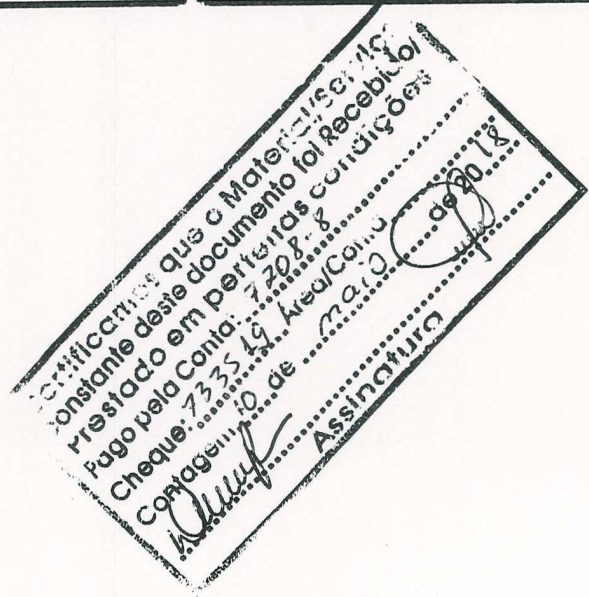 Certificamos que o Material/Serviço
constante deste documento foi Recebido/
Prestado em perfeitas condições
Pago pela Conta: 7208-8
Cheque: 733519 Área/Conta
Contagem, 10 de maio de 20 18
Assinatura